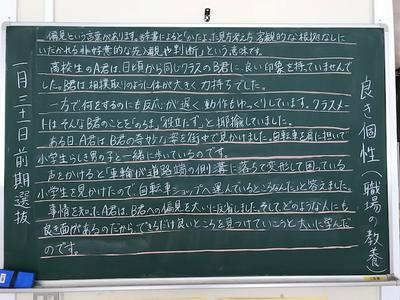 良き個性(職場の教養)
偏見という言葉があります。辞書によると「かたよった見方・考え方、客観的な根拠なしに
いだかれる非好意的な先入観や判断」という意味です。
高校生のA君は、日頃から同じクラスのB君に、良い印象を持っていませんで
した。B君は相撲取りのように体が大きく力持ちでした。
一方で何をするのにも反応が遅く動作もゆっくりしています。クラスメー
トはそんなB君のことを「のろま」「役立たず」と揶揄していました。
ある日A君はB君の奇妙な姿を街中で見かけました。自転車を肩に担いで
小学生らしき男の子と一緒に歩いているのです。
声をかけると「車輪が道路端の側溝に落ちて変形して困っている
小学生を見かけたので、自転車ショップへ運んでいるところなんだ」と答えました。
事情を知ったA君は、B君への偏見を大いに反省しました。そして、どのような人にも
良き面があるのだから、できるだけ良いところを見つけていこうと大いに学んだ
のです。
一月三十日前期選抜